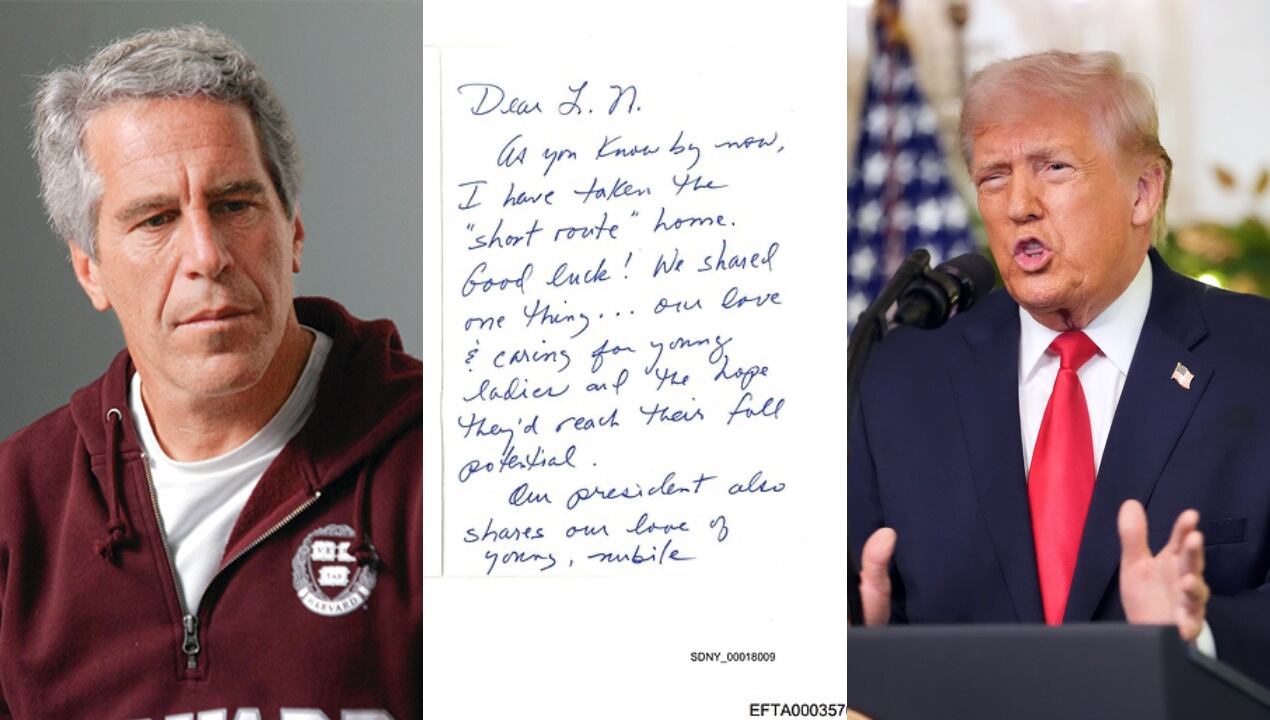 Dear L. N.
As you know by now,
I have taken the
"short route" home.
Good luck! We shared
one thing... our love
& caring for young
ladies and the hope
they'd reach their full
potential.
Our president also
shares our love of
young, nubile
SDNY_00018009
EFTA000357
HARVARD